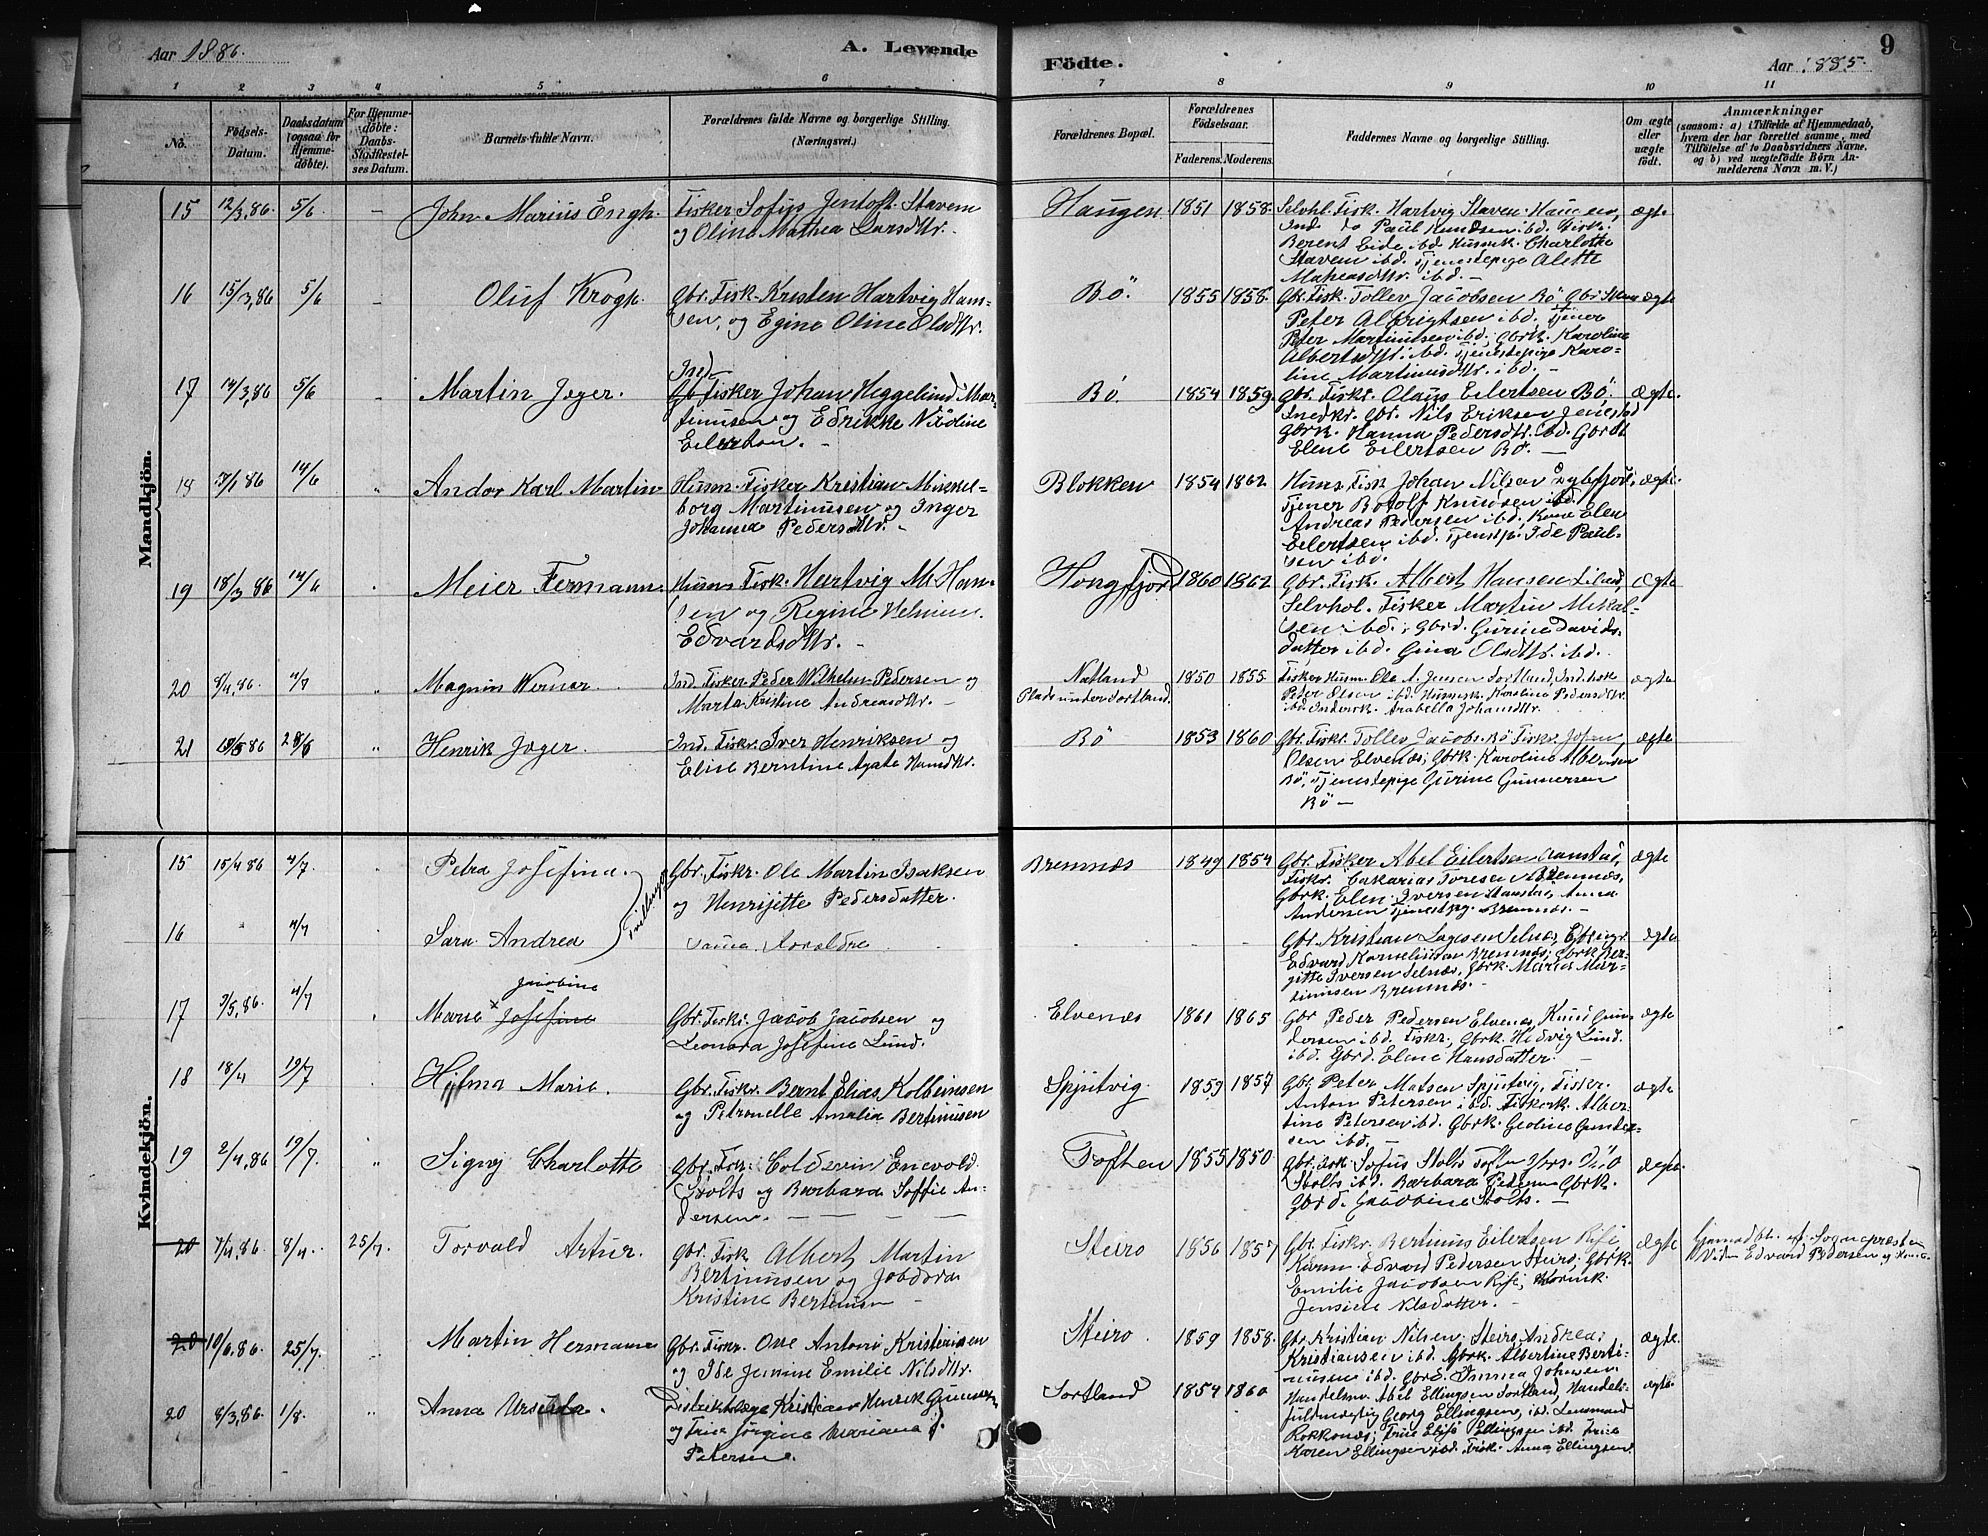 Aar 1886.
A. Levende
Födte.
Aar 1885.
9
1 2 3 4 5 6 7 8 9 10 11
No.
Födsels-Datum.
Daabsdatum (ogsaa for Hjemmedöbte).
For Hjemmedöbte: Daabs-Stadfæstelses Datum.
Barnets fulde Navn.
Forældrenes fulde Navne og borgerlige Stilling. (Næringsvei.)
Forældrenes Bopæl.
Forældrenes Födselsaar.
Faderens. Moderens.
Faddernes Navne og borgerlige Stilling.
Om ægte eller uægte födt.
Anmærkninger
(saasom: a) i Tilfælde af Hjemmedaab, hvem der har forrettet samme, med Tilföielse af to Daabsvidners Navne, og b) ved uægtefödte Börn Anmelderens Navn m. V.)
Mandkjön.
15 12/3,86. 5/6 – John Marius Engh. Fisker Sofus Jentoft Stavem
og Oline Mathea Larsdttr.
Haugen 1851 1858. Selvhl. Fisk. Hartvig Staven Haugen,
Ind do Paul Knudsen ibd.
Berent Eide ibd. Charlotte
Stavem ibd. Tjenestepige Alette
ibd. –
ægte
16 15/3,86 5/6 – Oluf Krogh. Gbr. Fisk. Kristen Hartvig Han-
sen, og Egine Oline Olsdttr.
Bö. 1855 1858. Gbr. Fisk. Tollev Jacobsen Bö
Peter Albrigtsen ibd. Tjener
Peter Martinusen ibd; Gbrk. Karoline
Albertsdttr. ibd. Tjenestepige Karo-
line Martinusdttr. ibd. –
ægte
17 14/3,86 5/6 Martin Jæger.
Ind.
Fisker Johan Heggelund Mar-
tinusen og Edrikke Nicoline
Eilertsen. –
Bö. 1854 1859 Gbr. Fiskr. Olaus Eilertsen Bö.
Gbr. Nils Eriksen
Gbrk. Hanna Pedersdttr. ibd. Gbrdt
Elene Eilertsen Bö. –
ægte.
18 7/1 86 14/6 " Andor Karl Martin Husm. Fisker Kristian
borg Martinussen og Inger
Johanna Pedersdttr. "
Blokken 1854 1862 Husm. Fisk Johan Nilsen
Tjener Botolf Knudsen ibd.
Andreas Pedersen ibd, Kone Elen
Eilertsen ibd. Tjenstp. Ide Paul-
sen ibd.
ægte.
19 18/3 86 14/6 Meier Fermann. Husm. Fisk. Hartvig M. Han-
sen og Regine Helmine
Edvardsdttr. –
Hongfjord 1860 1862 Gbr. Fisk. Albert Hansen
Selvhol. Fisker Martin Mikal-
sen ibd; Gbrd. Gurine Davids-
datter ibd. Gina Olsdttr. ibd.
ægte
20 8/4,86. 4/7 " Magnus Werner. Ind. Fisker Peder Wilhelm Pedersen og
Marta Kristine Andreasdttr. –
Natland
Plads under Sortland.
1850 1855 Fisker Husm. Ole A. Jensen Sortland, Ind. Fisk
Peder Olsen ibd. Husmk. Karoline Pedersdttr.
ibd. Inderk. Arabella Johansdttr.
ægte
21 86 28/6 " Henrik Jæger. Ind. Fiskr. Iver Henriksen og
Eline Berntine Agate Hansdttr.
Bö 1853 1860 Gbr. Fiskr. Tollev Jacobs. Bö Fiskr. Johan
Olsen Elvenæs; Gbrk. Karoline Albertsen
Bö, Tjenestepige Gurine Gunnersen
Bö –
ægte
Kvindekjön.
15 15/4 86 4/7 Petra Josefina. Gbr. Fiskr. Ole Martin Isaksen
og Henrijette Pedersdatter.
Tvillinger
Bremnæs 1849 1854 Gbr. Fisker Abel Eilertsen
Fiskr. Cakarias Toresen Bremnæs,
Gbrk. Elen Iversen Anna
Andersen Tjenestpg. Bremnæs. –
ægte
16 " 4/7 Sara Andrea Samme Forældre
Gbr. Kristian Lagesen Selnæs,
Edvard Kornelissen Bremnæs; Gbrk. Ber-
gitte Iversen Selnæs, Gbrk. Marie Mar-
tinusen Bremnæs. –
ægte
Jacobine
17 3/5,86. 4/7 Marie Josefine Gbr. Fiskr. Jacob Jacobsen og
Leonora Josefine Lund.
Elvenæs 1861 1865 Gbr Peder Pedersen Elvenæs, Knud Gun-
dersen ibd. Fisker, Gbrk. Hedvig Lund.
ibd. Gbrd. Elene Hansdatter. –
ægte
18 18/4 19/7 Hjlma Marie. Gbr. Fiskr. Bernt Elias Kolbeinsen
og Petronelle Amalia Bertinusen
Spjutvig. 1859 1857 Gbr. Peter Matsen Spjutvig, Fisker
Anton Petersen ibd. Fiskerk. Alber-
tine Petersen ibd. Gbrk. Geoline Gunder-
sen ibd. –
ægte
19 2/4,86 19/7. " Signy Charlotte Gbr. Fskr. Coldevin Enevold
Stolts og Barbara Soffie An-
dersen. –
Toften 1855 1850 Gbr. Fisk Sofus Stolts Toften
Stolts ibd. Barbara
Gbrd. Jacobine Stolts. –
ægte.
20 7/4,86. 8/4. 25/7 Torvald Artur. Gbr. Fisk Albert Martin
Bertinussen og
Kristine Bertinusen –
Steiro 1856 1857 Gbr. Fiskr. Bertinus Eilertsen
Edvard Pedersen Steiro; Gbrk.
Emilie Jacobsen
Jensine Nilsdatter. –
ægte
Hjemmedbt. af Sognepræsten
Vidn Edvard Pedersen og
20 10/6,86. 25/7. Martin Hermann Gbr. Fiskr. Ove Antoni Kristensen
og Ide Jensine Emilie Nilsdttr.
Steiro. 1859 1858. Gbr. Kristian Nilsen Steiro, Andreas
Kristiansen ibd. Gbrk. Albertine Berti-
nussen ibd. Gbrd. Johnsen
ægte.
20 8/3,86. 1/8. " Anna Ursella. Distriktslæge Kristian Henrik
og Frue Jørgine Mariane f.
Petersen.
Sortland 1854 1860 Handelsm. Abel Ellingsen Sortland, Handels-
fuldmægtig Georg Ellingsen, ibd. Lensmand
Rokkonæs; Frue Elise Ellingsen ibd. Frue
Karen Ellingsen ibd. Frk. Anna Ellingsen.
ægte